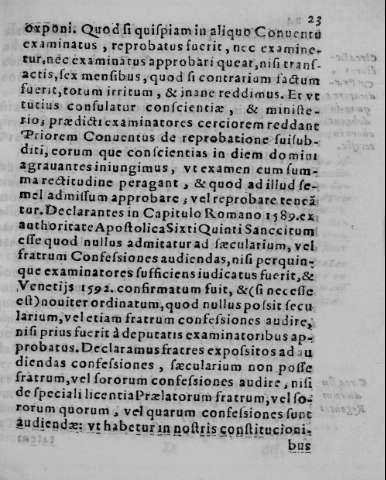 23
exponi. Quod si quispiam in aliquo Conuentu
examinatus, reprobatus fuerit, nec examine-
tur, nec examinatus approbari queat, nisi trans-
actis, sex mensibus, quod si contrarium factum
fuerit, totum irritum, & inane reddimus. Et vt
tutius consulatur conscientiæ, & ministe-
rio, prædicti examinatores cerciorem reddant
Priorem Conuentus de reprobatione sui sub-
diti, eorum que conscientias in diem domini
agrauantes iniungimus, vt examen cum sum-
ma rectitudine peragant, & quod ad illud se-
mel admissum approbare, vel reprobare teneā
tur. Declarantes in Capitulo Romano 1589. ex
authoritate Apostolica Sixti Quinti Sanccitum
esse quod nullus admitatur ad sæcularium, vel
fratrum Confessiones audiendas, nisi per quin-
que examinatores sufficiens iudicatus fuerit, &
Venetijs 1592. confirmatum fuit, & (si necesse
est) nouiter ordinatum, quod nullus possit secu
larium, vel etiam fratrum confessiones audire,
nisi prius fuerit à deputatis examinatoribus ap-
probatus. Declaramus fratres expossitos ad au
diendas confessiones, sæcularium non posse
fratrum, vel sororum confessiones audire, nisi
de speciali licentia Prælatorum fratrum, vel so-
rorum quorum, vel quarum confessiones sunt
audiendæ: vt habetur in nostris constitucioni-
bus